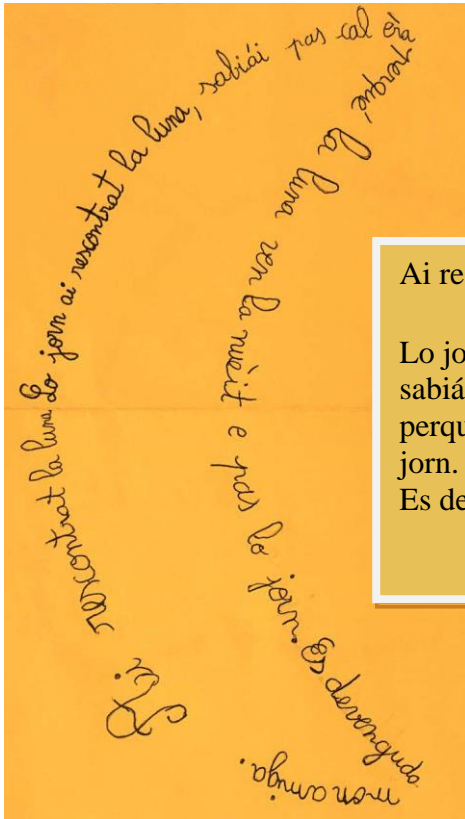 Ai rescontrat la luna
Lo jorn ai rescontrat la luna, sabiái pas cal éra
perqué la luna ven la nuèit e pas lo jorn. Es devenguda
mon amiga.
Ai re
Lo jo
sabiá
perqu
jorn.
Es de